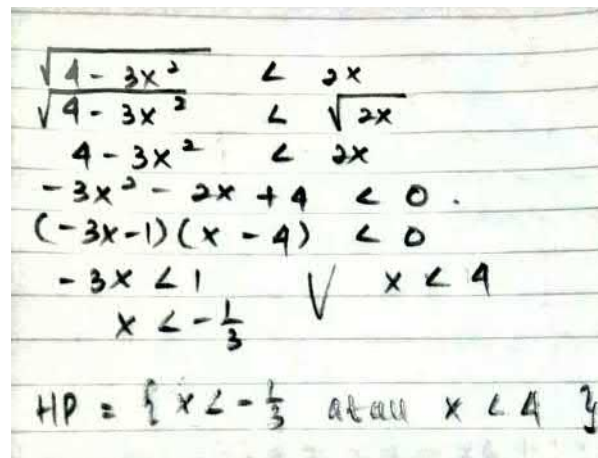 √(4 - 3x²) < 2x
√(4 - 3x²) < √(2x)
4 - 3x² < 2x
-3x² - 2x + 4 < 0 .
(-3x-1)(x - 4) < 0
-3x < 1 V x < 4
x < -1/3
HP = { x < -1/3 atau x < 4 }